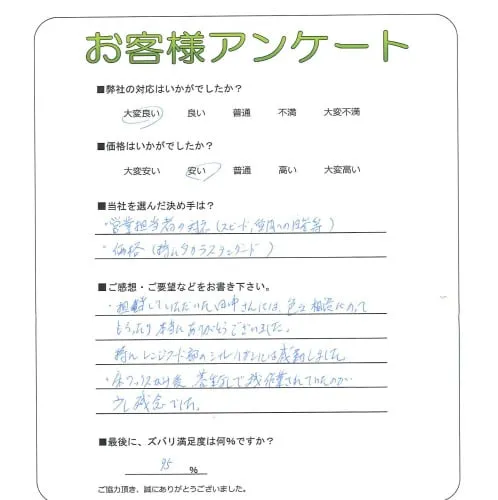 お客様アンケート
■弊社の対応はいかがでしたか?
大変良い 良い 普通 不満 大変不満
■価格はいかがでしたか?
大変安い 安い 普通 高い 大変高い
■当社を選んだ決め手は?
・営業担当者の対応(スピード、質問への回答等)
・価格(特にタカラスタンダード)
■ご感想・ご要望などをお書き下さい。
・担当していただいた田中さんには、色々相談にのって
もらったり本当にありがとうございました。
特にレンジフード部の には感動しました。
・床ワックスがけ後、養生なしで残作業されていたのが
少し残念でした。
■最後に、ズバリ満足度は何%ですか?
95 %
ご協力頂き、誠にありがとうございました。